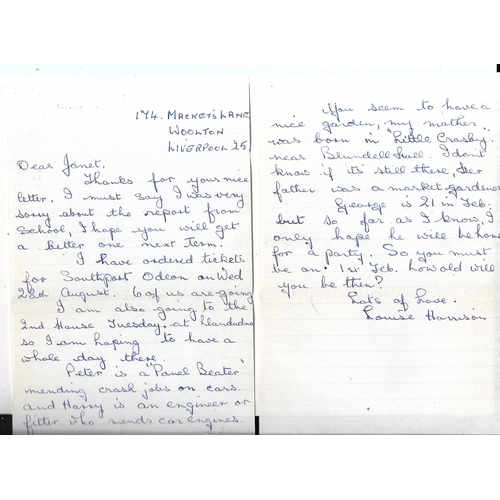 174. MACKETS LANE
WOOLTON
LIVERPOOL 25.
Dear Janet.
Thanks for your nice
letter. I must say I was very
sorry about the report from
School, I hope you will get
a better one next Term.
I have ordered tickets
for Southport Odeon on Wed
28th August. 6 of us are going
I am also going to the
2nd House Tuesday. at Llandudno
so I am hoping to have a
whole day there.
Peter is a "Panel Beater"
mending crash jobs on cars.
and Harry is an engineer or
fitter who mends car engines.
You seem to have a
nice garden, my mother
was born in "Little Crosby"
near Blundellsall. I dont
know if its still there, Her
father was a market gardener
George is 21 in Feb:
but so far as I know, I
only hope he will be home
for a party. So you must
be on. 1st Feb. how old will
you be then?
Lots of Love.
Louise Harrison